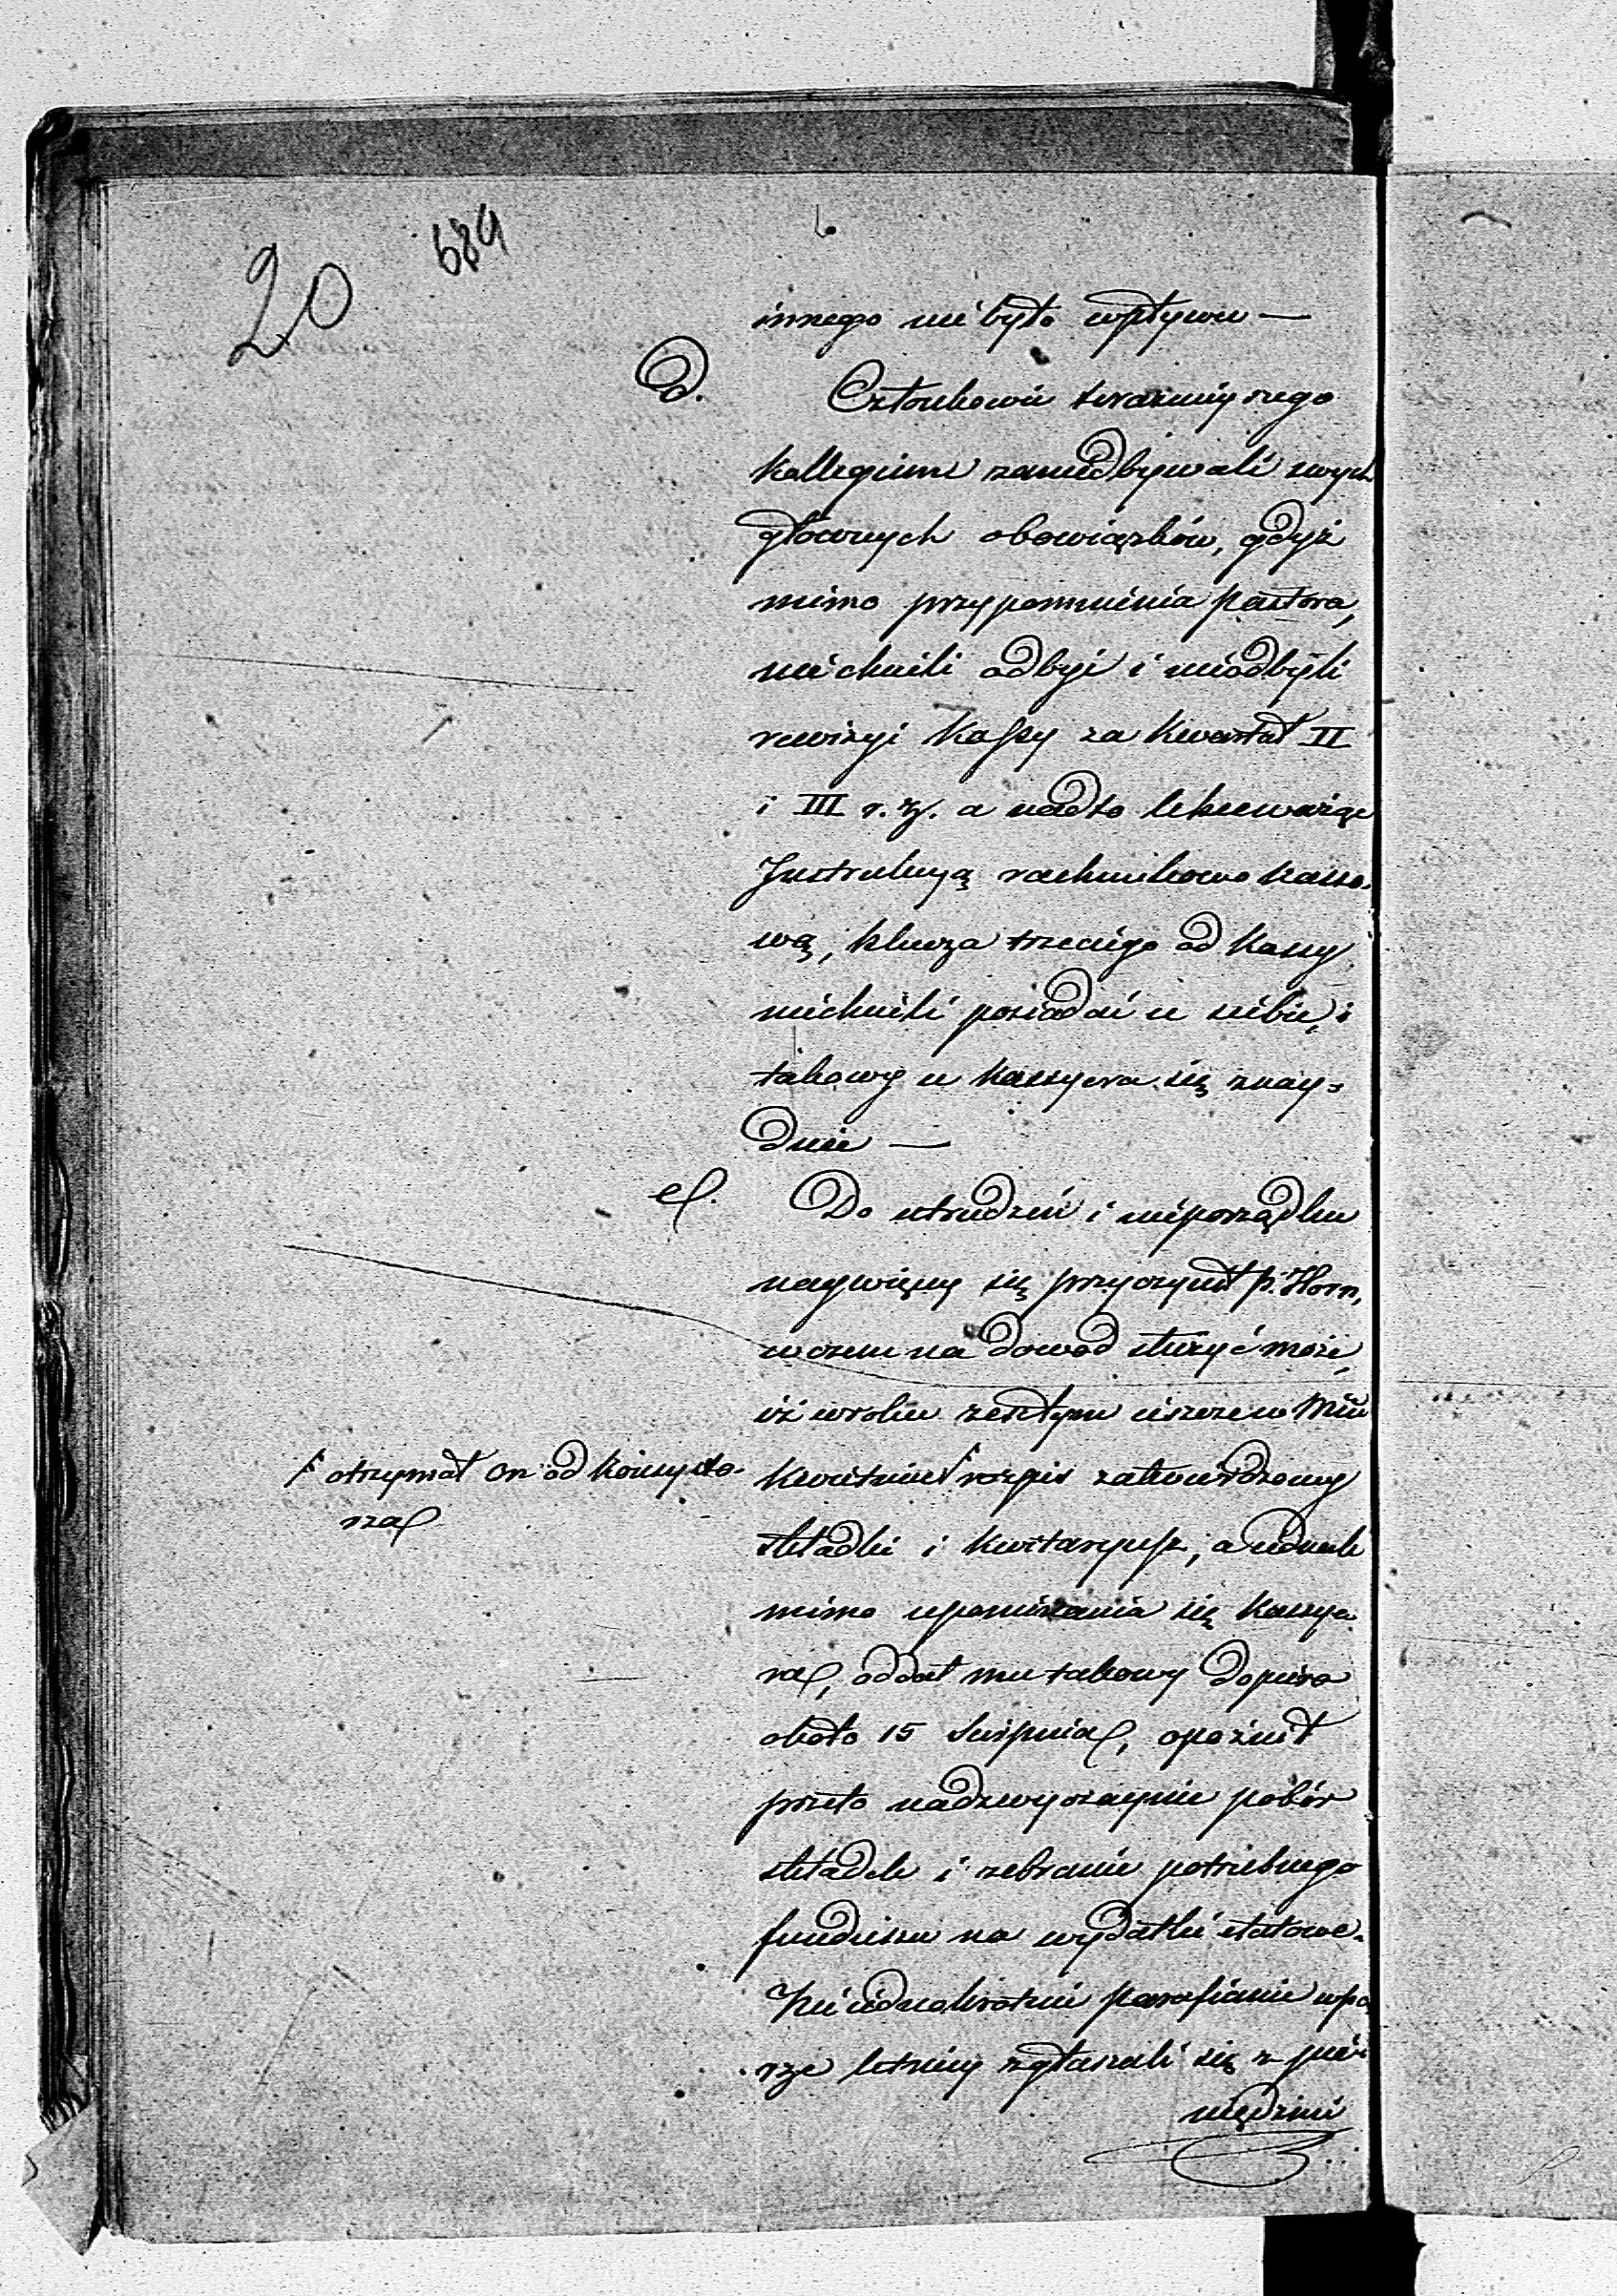 20
689
6
innego nie było wpływu —
d.
Członkowie teraznieyszego
Kollegium zaniedbywali swych
głównych obowiązków, gdyż
mimo przypomnienia pastora,
niechcieli odbyć i nieodbyli
rewizyi Kassy za kwartał II
i III r. z. a nadto lekceważąc
Instrukcyą rachunkowo kasso-
wą, klucza trzeciego od Kassy
niechcieli posiadać u siebie, i
takowy u Kassyera się znay-
duie —
e.
Do utrudzeń i nieporządku
naywięcey się przyczynił p. Horn,
w czem na dowód służyć może,
iż w roku zeszłym ieszcze w Mcu
Kwietniu Ⱶ rozpis zatwierdzony
Ⱶ otrzymał on od Konsysto-
rza
składki i Kwitaryusz, a iednak
mimo upominania się Kassye-
ra, oddał mu takowy dopiero
około 15 Sierpnia, opoźnił
przeto nadzwyczaynie pobór
składek i zebranie potrzebnego
funduszu na wydatki etatowe.
Nieiednokrotnie parafianie w po
rze letniey zgłaszali się z pie-
niędzmi